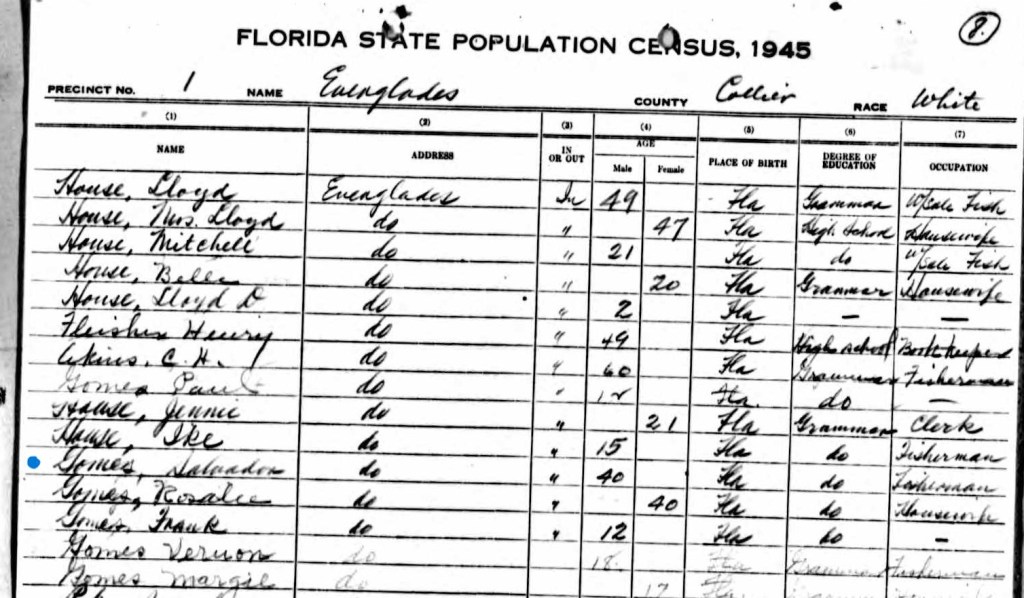 8.
FLORIDA STATE POPULATION CENSUS, 1945
PRECINCT NO. 1 NAME Everglades COUNTY Collier RACE White
(1) (2) (3) (4) (5) (6) (7)
NAME ADDRESS IN OR OUT AGE Male Female PLACE OF BIRTH DEGREE OF EDUCATION OCCUPATION
House, Lloyd Everglades In 49 Fla Grammar W/sale Fish
House, Mrs. Lloyd do " 47 Fla High School Housewife
House, Mitchell do " 21 Fla do W/sale Fish
House, do " 20 Fla Grammar Housewife
House, Lloyd D do " 2 Fla — —
Henry do " 49 Fla High School Bookkeeper
Akins, C. H. do " 60 Fla Grammar Fisherman
Gomes Paul do " Fla. do —
House, Jennie do " 21 Fla Grammar Clerk
House, Ike do " 15 Fla do Fisherman
Gomes, Salvador do " 40 Fla do Fisherman
Gomes, Rosalie do " 40 Fla do Housewife
Gomes Frank do " 12 Fla do —
Gomes Vernon do 18. Fla Grammar Fisherman
Gomes Margie do 17 Fla